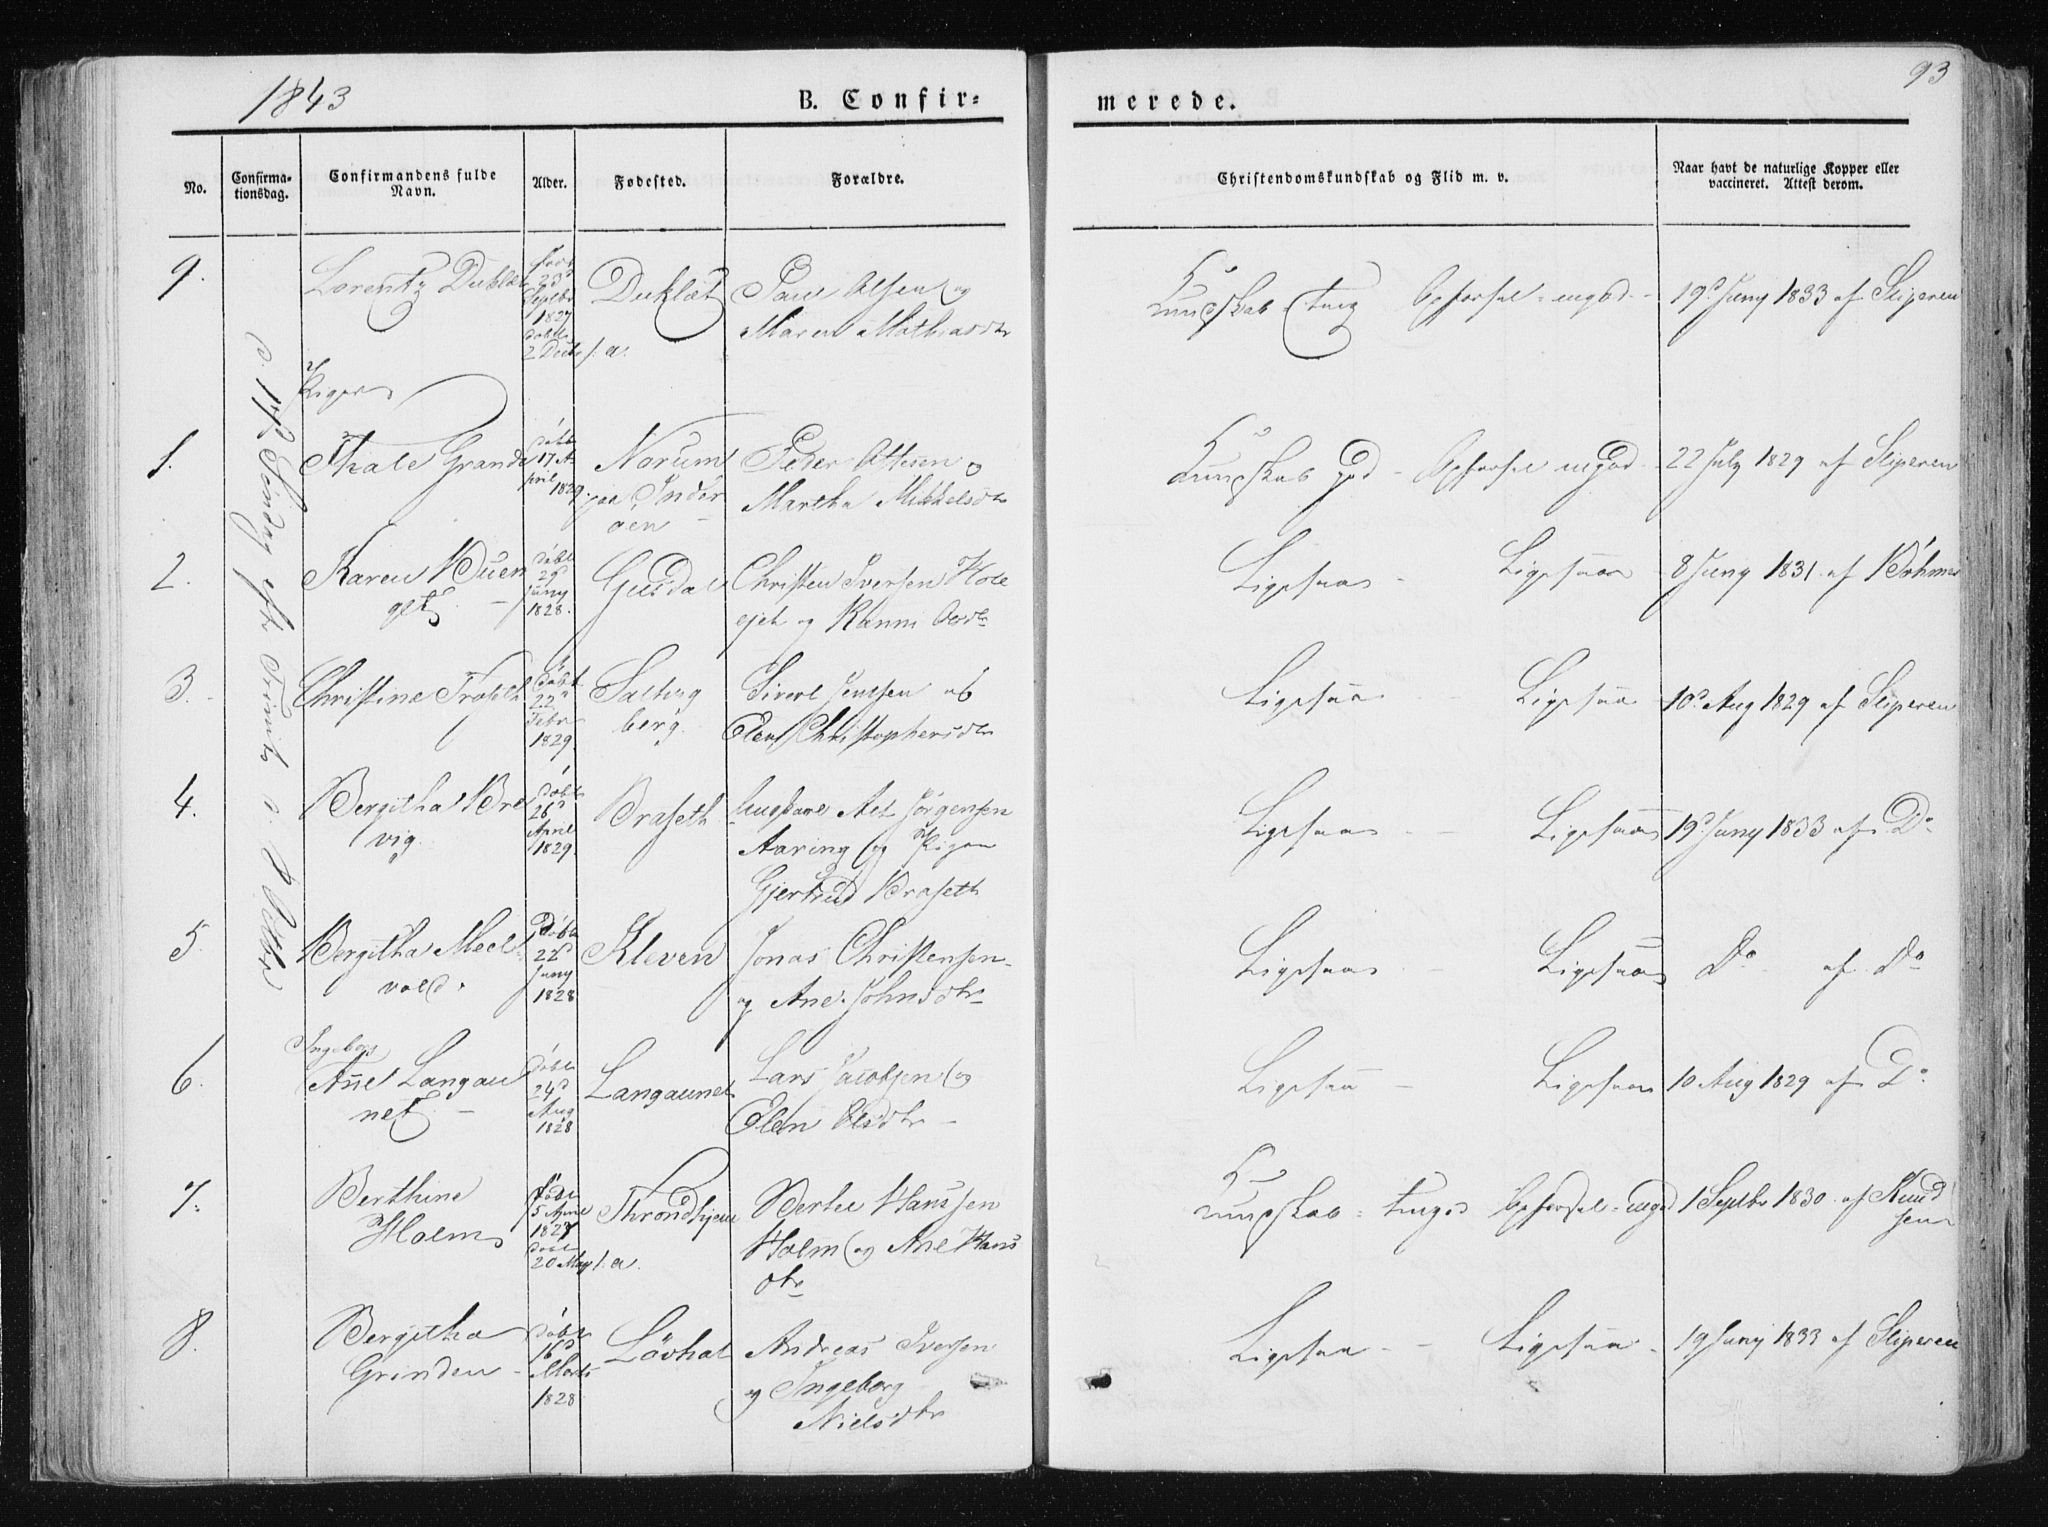 1843
B. Confir-
merede.
93
No.
Confirma-
tionsdag.
Confirmandens fulde
Navn.
Alder.
Fødested.
Forældre.
Christendomskundskab og Flid m. v.
Naar havt de naturlige Kopper eller
vaccineret. Attest derom.
9.
Lorentz Duklæt
født
23d
Septbr
1827
døbt
2 Decbr s. a.
Duklæt
Paul Olsen og
Maren Mathiasdtr
Kundskab Opførsel - megod -
19d Juny 1833 af Sliperen
Piger
1.
Thale Grande
døbt
17 A-
pril
1829.
Norum
paa Inder
øen
Peder Ottesen og
Martha Mikkelsdtr
Kundskab god - Opførsel megod -
22 July 1829 af Sliperen
2.
Karen Buen
get
døbt
29
Juny
1828.
Gusdal
Christen Iversen Hole
ejet og Ranni
Ligesaa - Ligesaa
8 Juny 1831. af Böhmer
3.
Christine Troseth
døbt
22d
Febr
1829.
Salberg
berg
Sivert Jensen og
Elen Christophersdtr
Ligesaa Ligesaa
10d Aug 1829 af Sliperen
4.
Bergitha Bre
vig.
døbt
26d
April
1829.
Braseth
Ungkarl Jørgensen
Aaring og Pigen
Gjertrud Braseth
Ligesaa - Ligesaa
19d Juny 1833 af Do
5.
Bergitha Meel
vold.
Døbt
22d
Juny
1828
Kleven
Jonas Christensen
og Ane Johnsdtr
Ligesaa - Ligesaa
Do af Do
6.
Ingeborg
Ane Langau
net. -
døbt
24d
Aug
1828
Langaunet
Lars Jacobsen og
Elen Olsdtr -
Ligesaa - Ligesaa
10 Aug 1829 af Do
7.
Berthine
Holm
født
5 April
1828
døbt
20 May s. a.
Throndhjem
Berter Hanssen
Holm og Ane Hans
dtr
Kundskab - Opførsel - megod
1 Septbr 1830. af Knud
sen
8.
Bergitha
Grinden -
døbt
16d
Marts
1828
Lövhal
Andreas Iversen
og Ingeborg
Nielsdtr
Ligesaa - - Ligesaa -
19 Juny 1833 af Sliperen